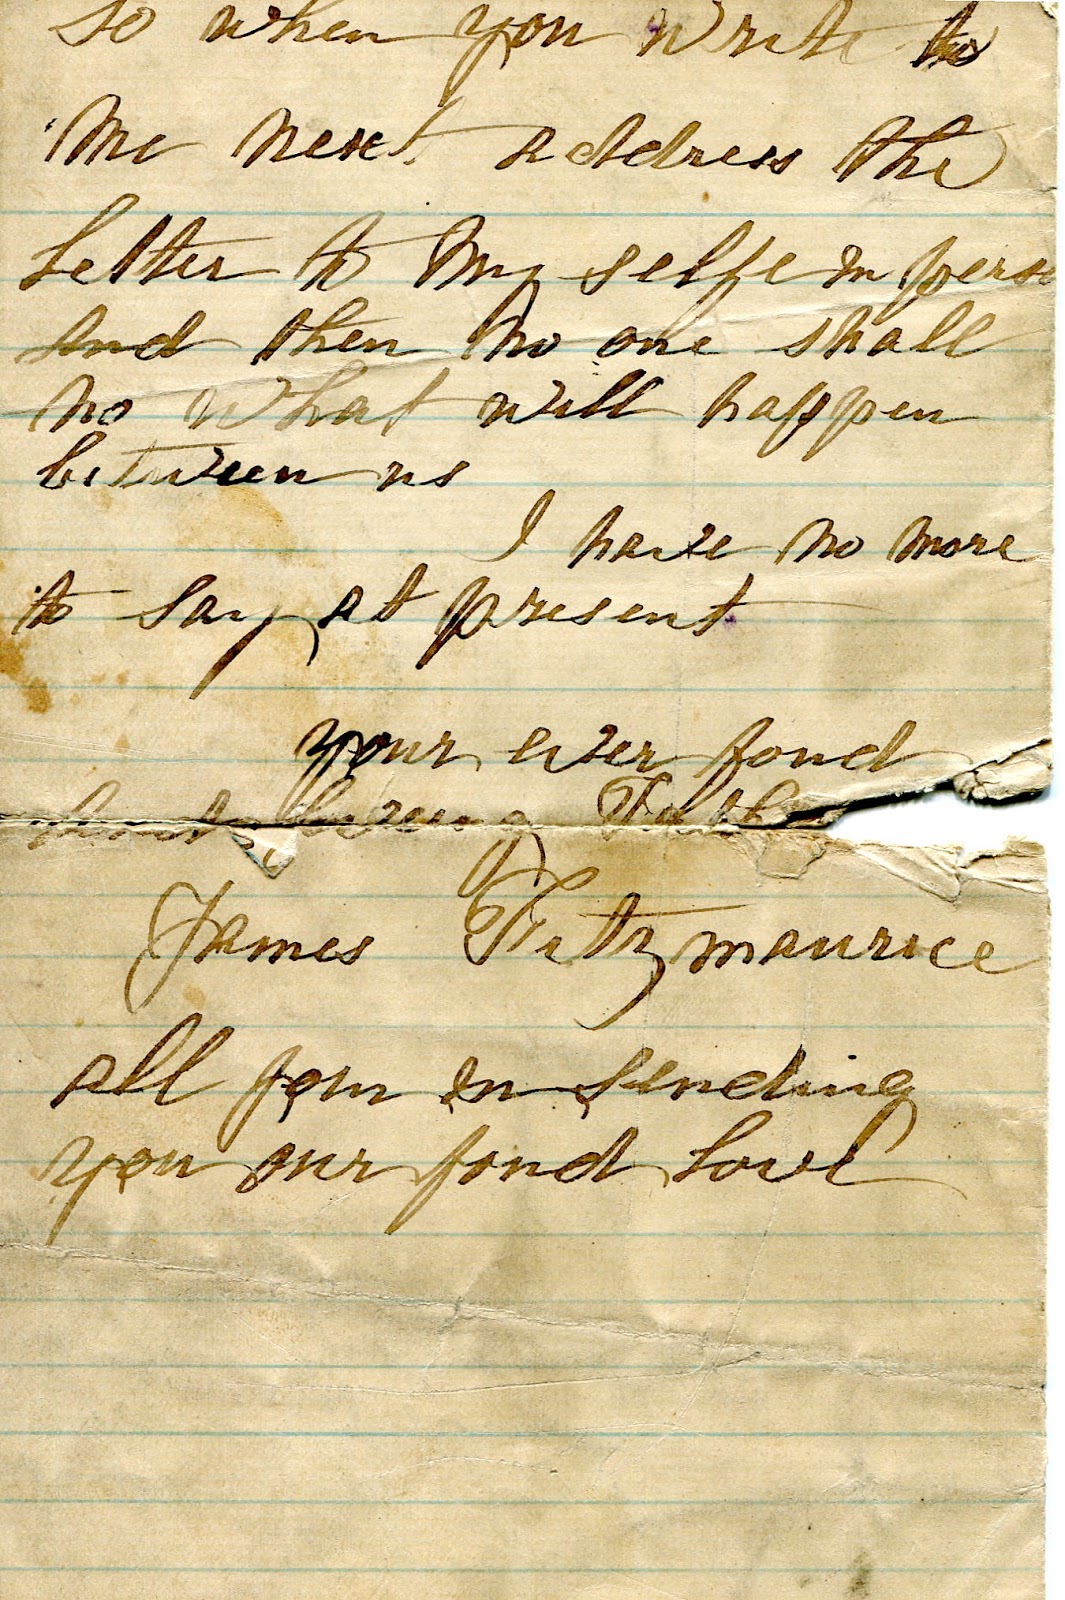 so when you write to
me next address the
letter to my selfe in perso
and then no one shall
no what will happen
between us
I have no more
to say at present
your ever fond
and loveing Fathe
James Fitzmaurice
all join in sending
you our fond love